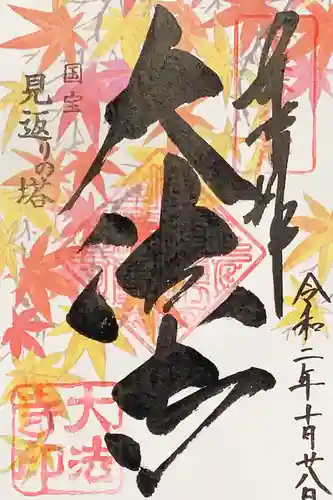 奉拝
大法寺
国宝
見返りの塔
令和二年十月廿八日
大法
寺印